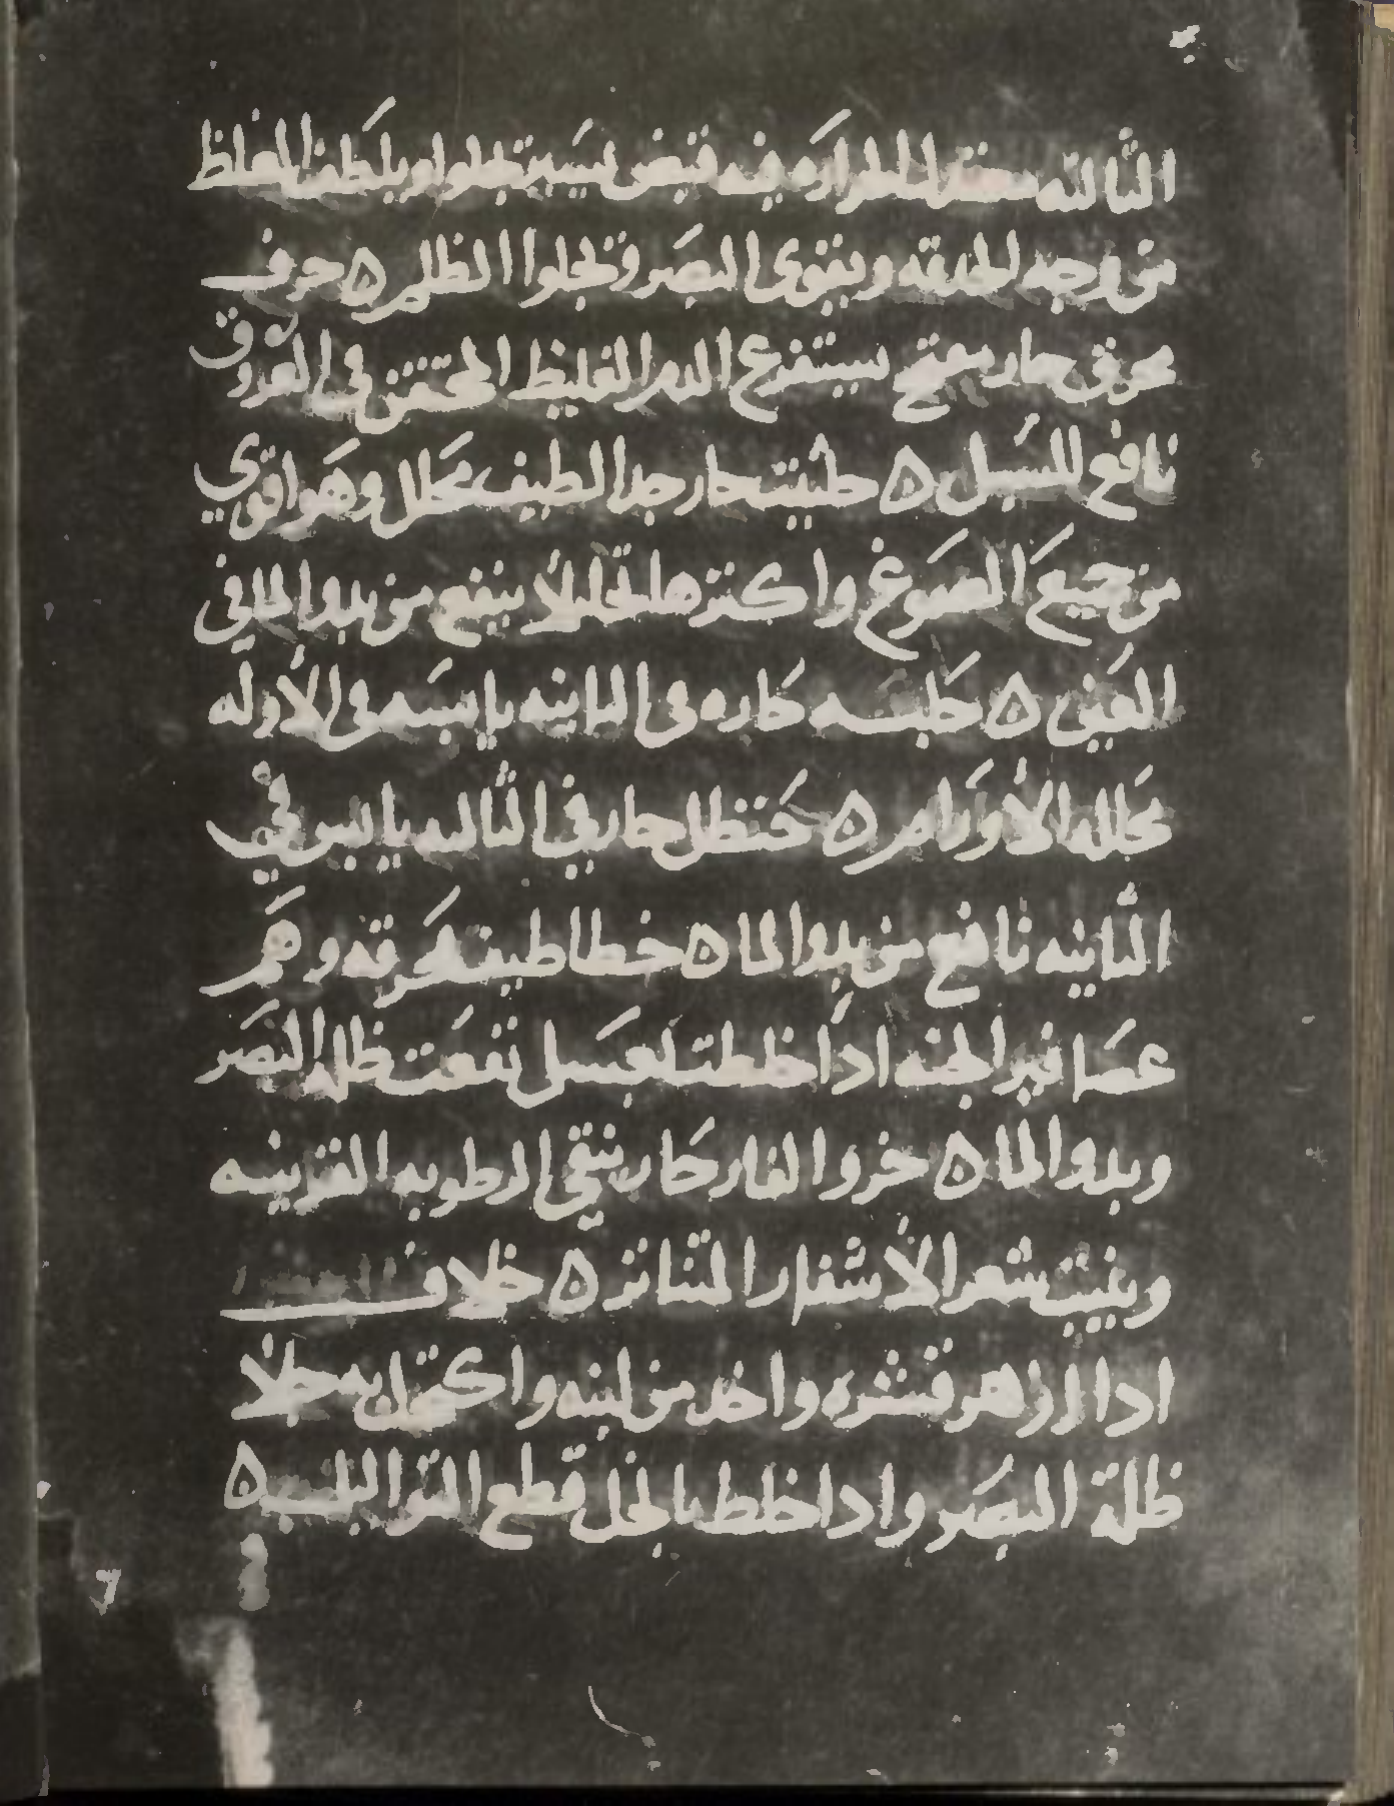 الثالثه معتدل الحراره فيه قبض يسير تجلوا ويلطف الغلظ
من وجه الحدقه ويقوى البصر وتجلوا الظلم ه حرف
محرق حار مفتح يستفرع الدم الغليظ المحتقن في العروق
نافع للسبل ه حلتيت حار جدا لطيف محلل وهو اقوي
من جميع الصموغ واكثرها تحليلا ينفع من بدوا الما في
العين ه حلبه حاره في الثانيه يابسه في الاوله
محلله الاورام ه حنظل حار في الثالثه يابس في
الثانيه نافع من بدوا الما ه خطاطيف محرقه وهم
عصافير الجنه اذا خلطت بعسل نفعت ظلمه البصر
وبدوا الما ه خروا الفار حار ينقي الرطوبه القرنيه
وينبت شعر الاشفار المتناثر ه خلاف
اذا ازهر قشره واخذ من لبنه واكتحل به جلا
ظلمة البصر واذا خلط بالخل قطع الثواليل ه